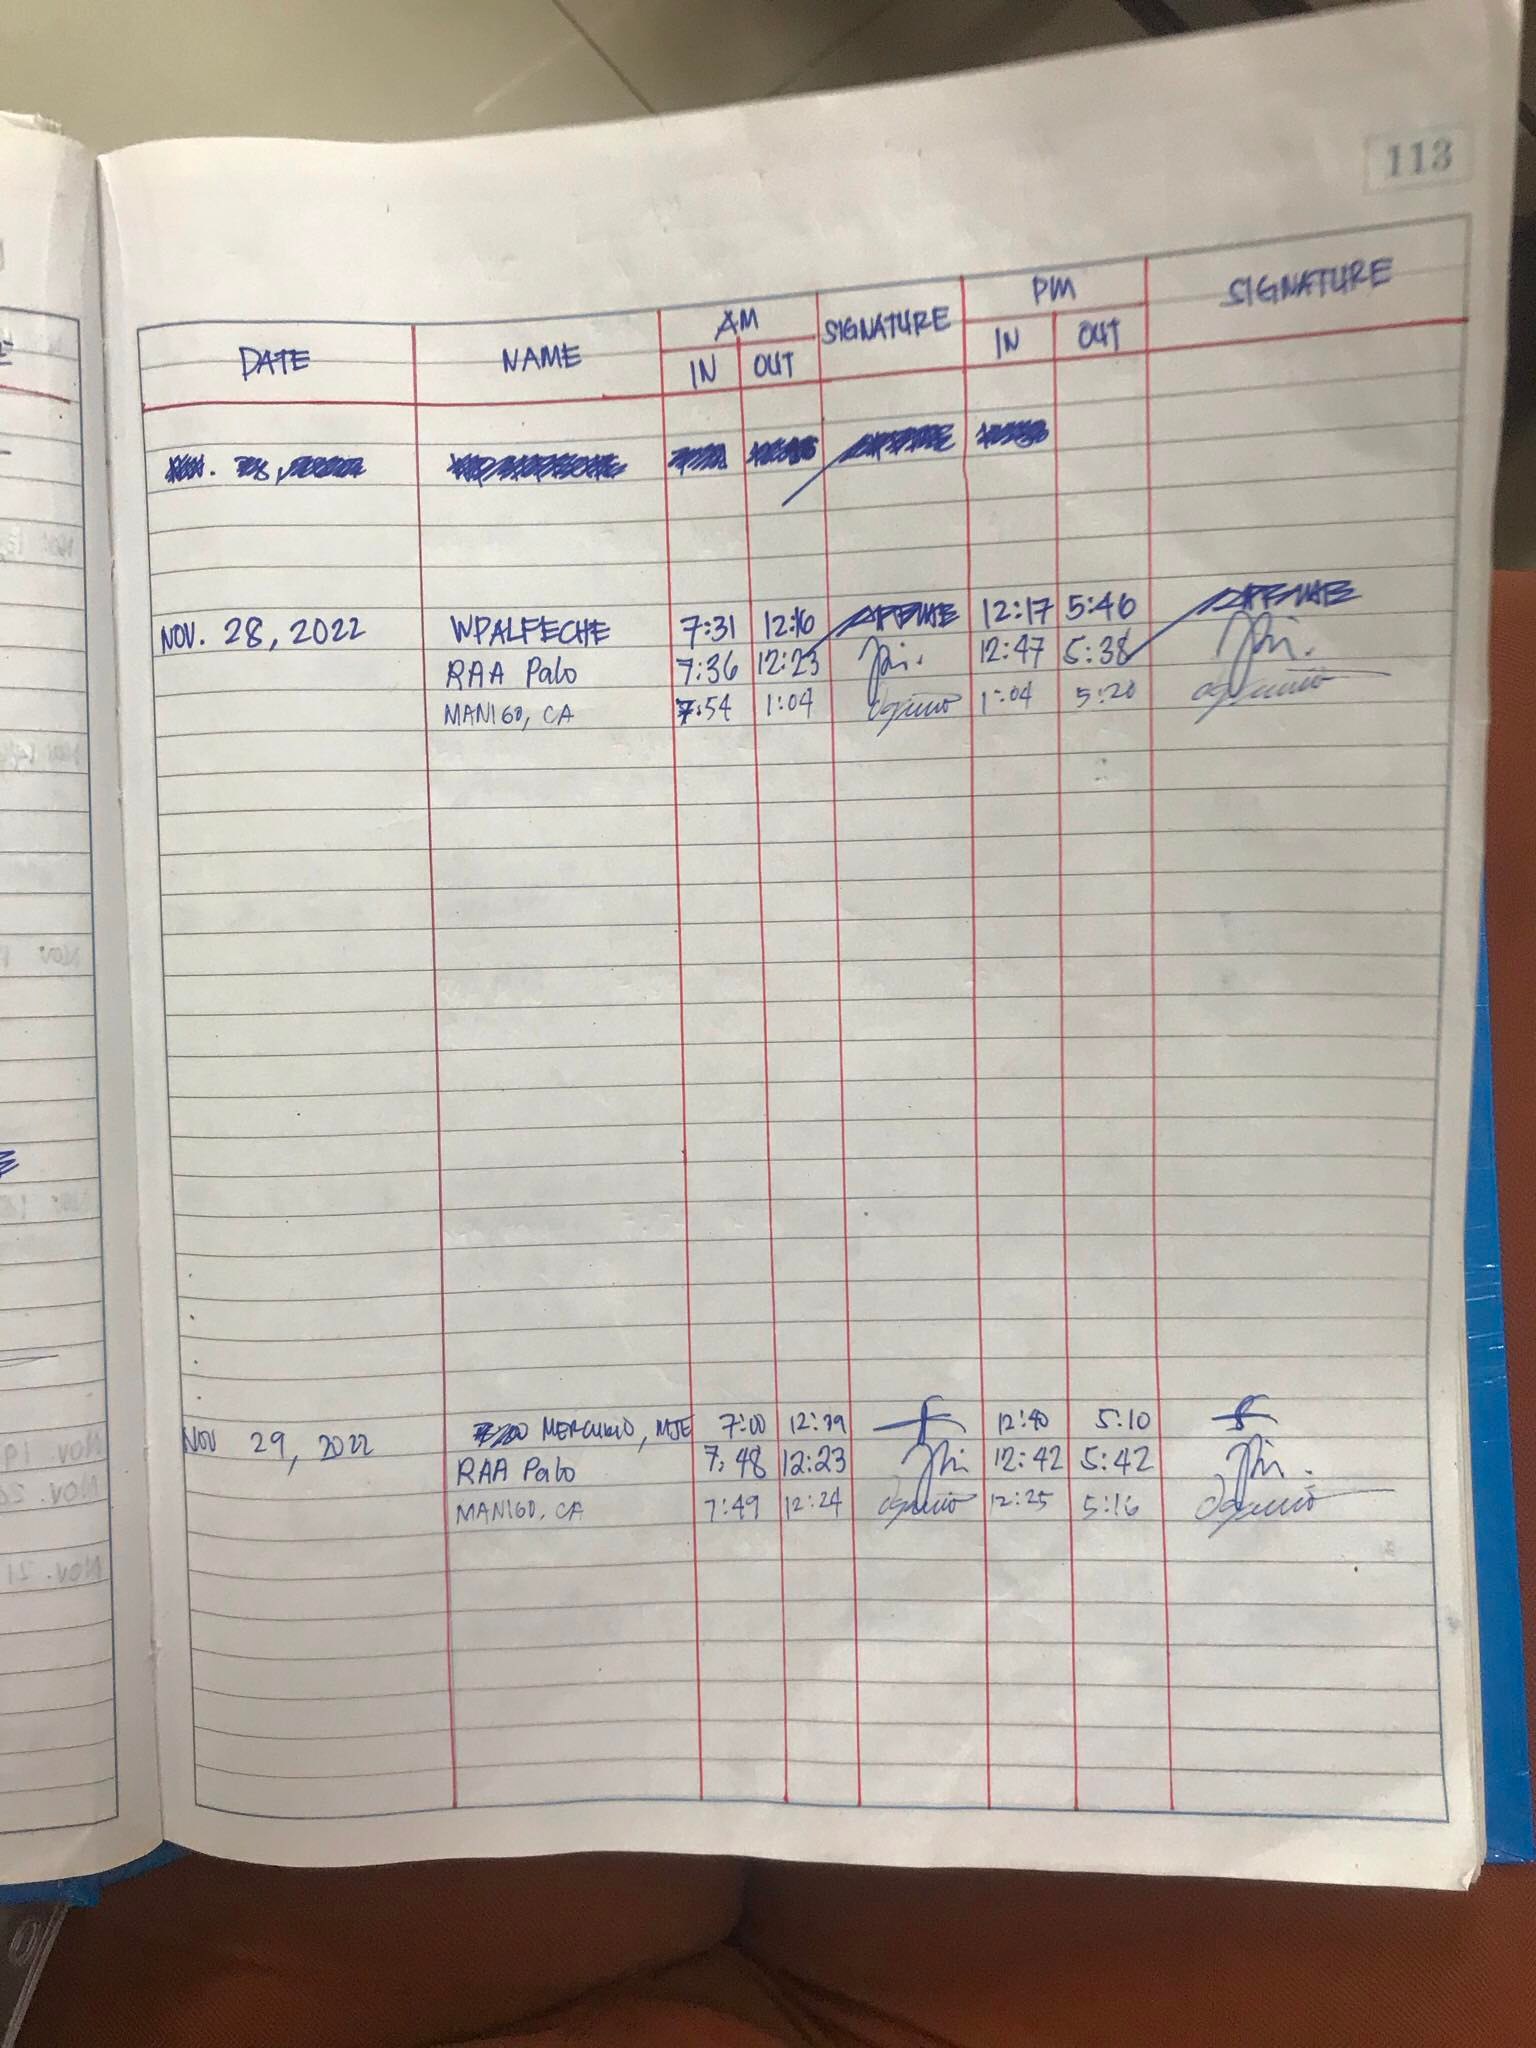 113
DATE NAME AM SIGNATURE PM SIGNATURE
IN OUT IN OUT
NOV. 28, 2022 WPALFECHE 7:31 12:16 12:17 5:46
RAA Palo 7:36 12:23 12:47 5:38
MANIGO, CA 7:54 1:04 1:04 5:20
NOV 29, 2022 MERCURIO, MJE 7:00 12:39 12:40 5:10
RAA Palo 7:48 12:23 12:42 5:42
MANIGO, CA 7:49 12:24 12:25 5:16